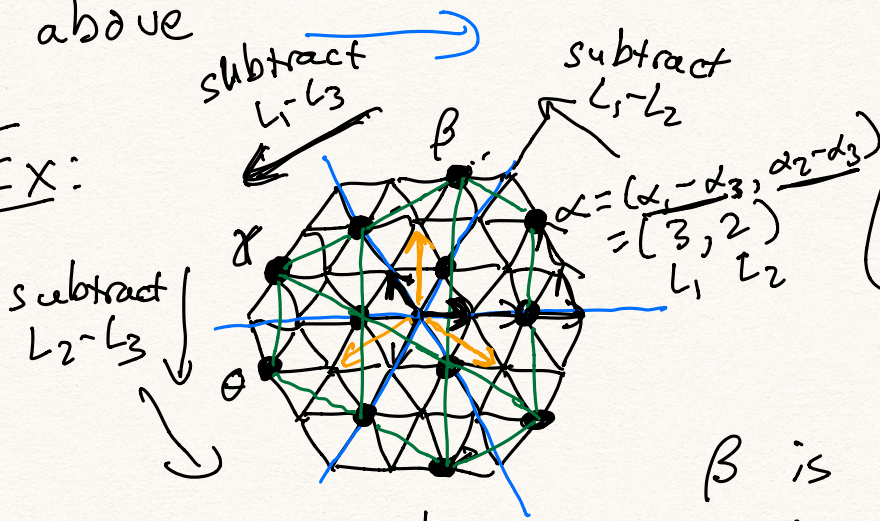 above
subtract
L₁-L₃
subtract
L₁-L₂
EX:
β
α=(α₁-α₃, α₂-α₃)
=(3, 2)
L₁ L₂
γ
subtract
L₂-L₃
θ
β is